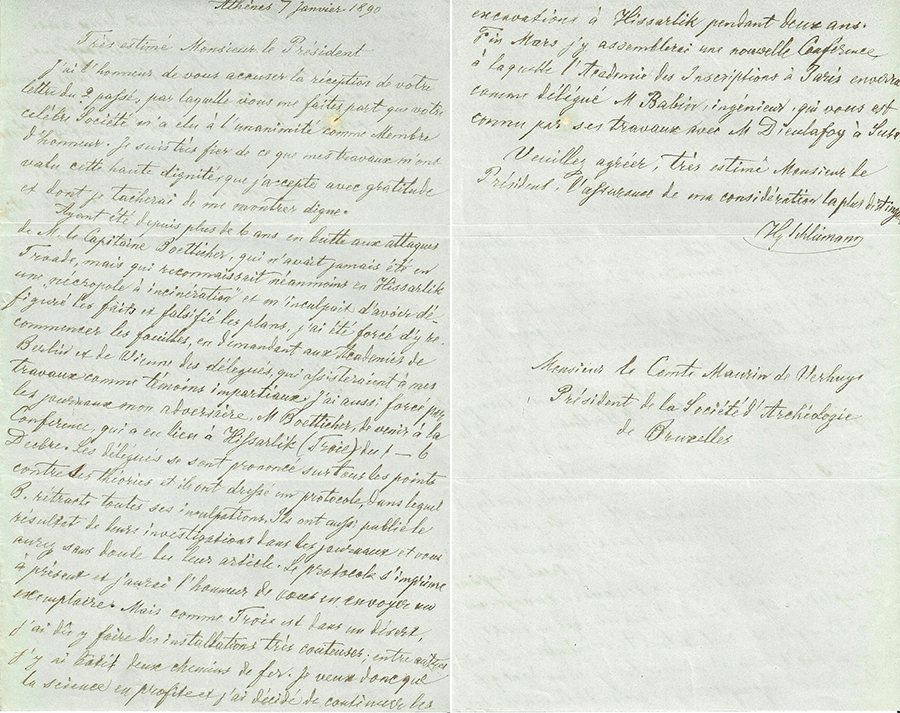 Athènes 7 Janvier 1890
Très estimé Monsieur le Président
J'ai l'honneur de vous accuser la réception de votre
lettre du 2 passé, par laquelle vous me faites part que votre
célèbre Société m'a élu à l'unanimité comme Membre
d'honneur. Je suis très fier de ce que mes travaux m'ont
valu cette haute dignité, que j'accepte avec gratitude
et dont je tacherai de me montrer digne.
Ayant été depuis plus de 6 ans en butte aux attaques
de M. le Capitaine Boetticher, qui n'avait jamais été en
Troade, mais qui reconnaissait néanmoins en Hissarlik
une "nécropole à incinération" et m'inculpait d'avoir dé-
figuré les faits et falsifié les plans, j'ai été forcé d'y re-
commencer les fouilles, en demandant aux Academies de
Berlin et de Vienne des délégués, qui assisteraient à mes
travaux comme témoins impartiaux; j'ai aussi forcé par
les journaux mon adversaire, M. Boetticher, de venir à la
Conférence, qui a eu lieu à Hissarlik (Troie) du 1 — 6
Dećbre. Les délégués se sont prononcé sur tous les points
contre ses théories et ils ont dressé un protocole, dans lequel
B. rétracte toutes ses inculpations. Ils ont aussi publié le
résultat de leurs investigations dans les journaux et vous
aurez sans doute lu leur article. Le protocole s'imprime
à présent et j'aurai l'honneur de vous en envoyer un
exemplaire. Mais comme Troie est dans un désert,
j'ai dû y faire des installations très couteuses; entre autres
j'y ai bâtit deux chemins de fer. Je veux donc que
la science en profite et j'ai décidé de continuer les
excavations à Hissarlik pendant deux ans.
Fin Mars j'y assemblerai une nouvelle Conférence
à laquelle l'Academie des Inscriptions à Paris enverra
comme délégué M Babin, ingénieur, qui vous est
connu par ses travaux avec M Dieulafoy à Suse
Veuillez agréer, très estimé Monsieur le
Président, l'assurance de ma considération la plus disting
Hy Schliemann
Monsieur le Comte Maurin de Verhuys
Président de la Société d'Archéologie
de Bruxelles